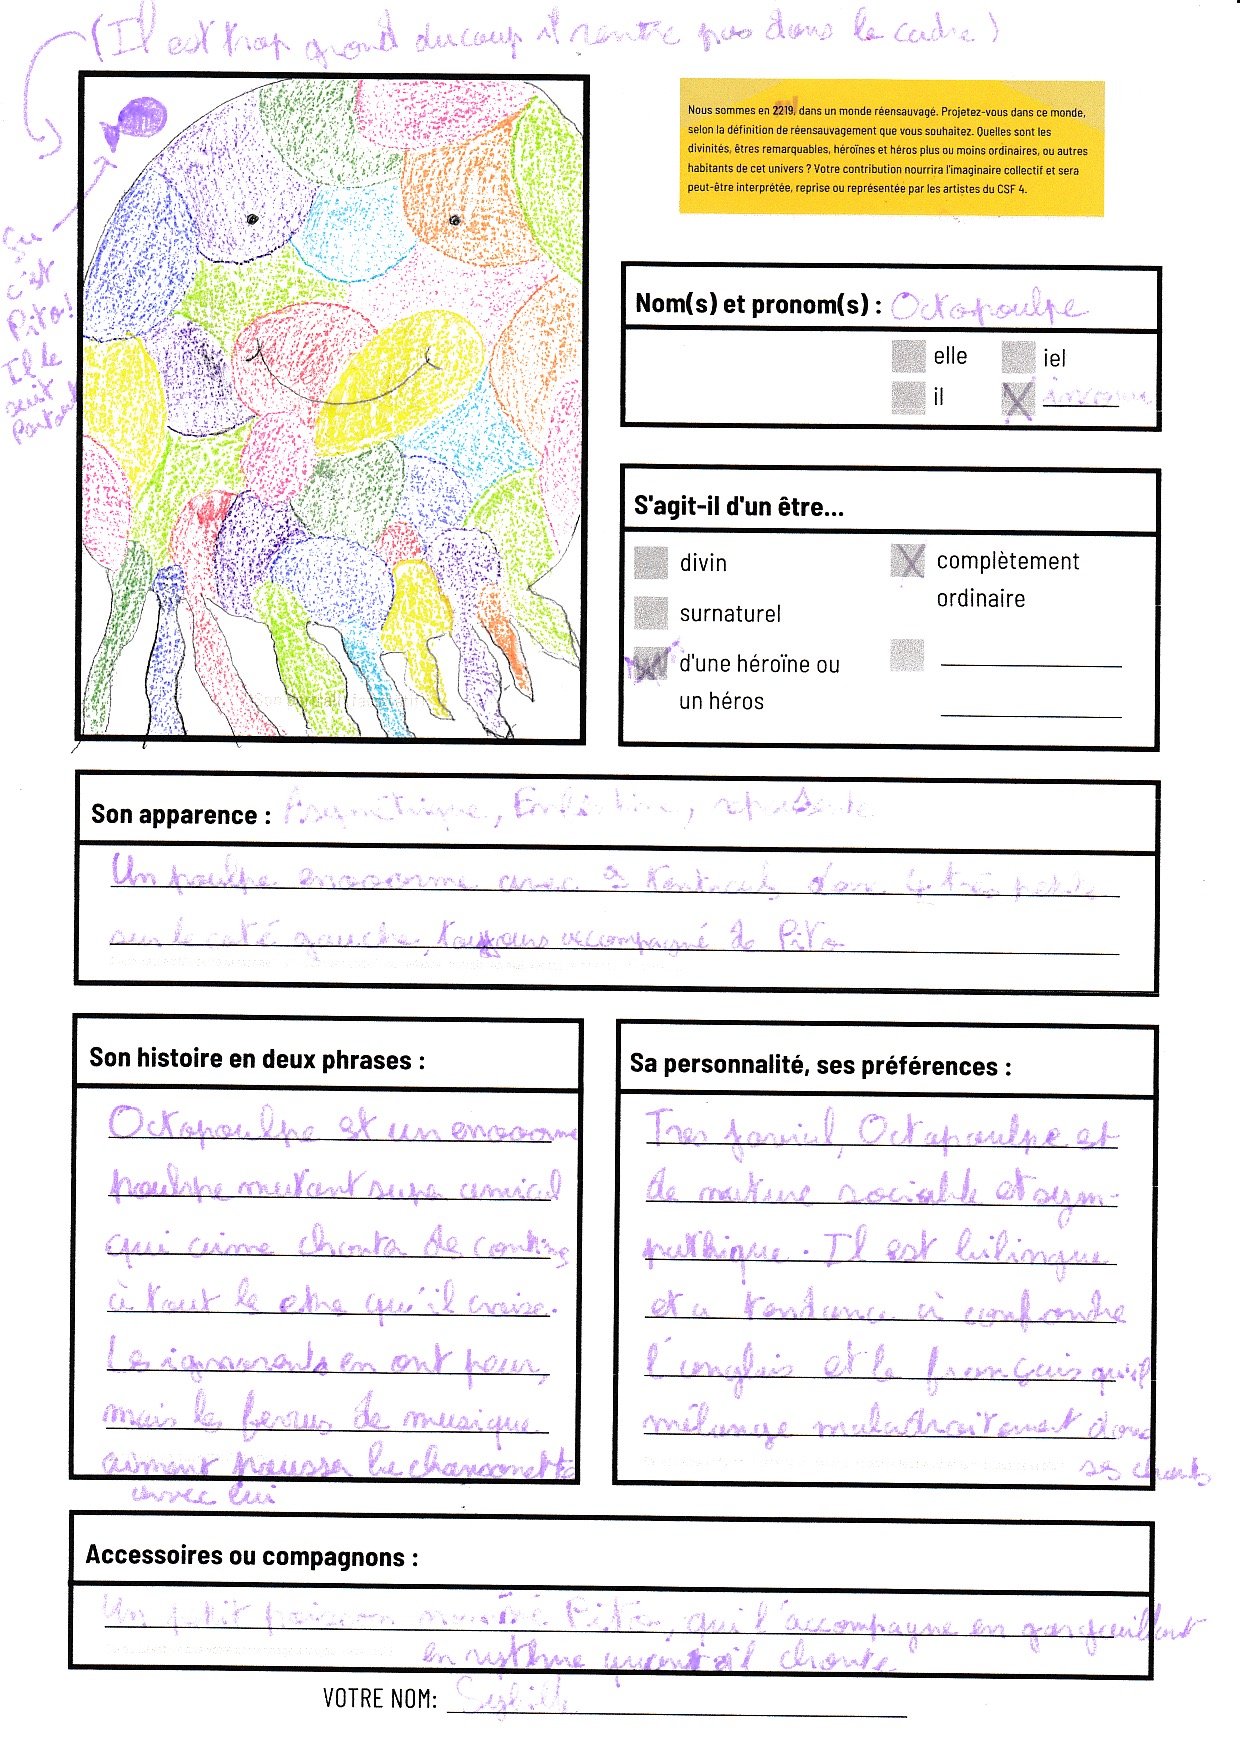 (Il est trop grand du coup il rentre pas dans le cadre)
Nous sommes en 2219, dans un monde réensauvagé. Projetez-vous dans ce monde,
selon la définition de réensauvagement que vous souhaitez. Quelles sont les
divinités, êtres remarquables, héroïnes et héros plus ou moins ordinaires, ou autres
habitants de cet univers ? Votre contribution nourrira l'imaginaire collectif et sera
peut-être interprétée, reprise ou représentée par les artistes du CSF 4.
c'est
Pito!
Il le
suit
Partout
Nom(s) et pronom(s) : Octapoulpe
elle
iel
il
S'agit-il d'un être...
divin
complètement
ordinaire
surnaturel
d'une héroïne ou
un héros
Son apparence : Asymétrique,
Un poulpe enooorme avec tentacules dont 4 très petits
sur le coté gauche, toujours accompagné de Pito
Son histoire en deux phrases :
Octapoulpe est un enooorme
poulpe mutant super amical
qui aime chanter de comtine
à tout le etre qu'il croise.
Les ignorants en ont peur,
mais les ferrus de musique
aiment pousser la chansonette
avec lui
Sa personnalité, ses préférences :
Tres jovial, Octapoulpe et
de nature sociable et sym-
pathique. Il est bilingue
et a tendance à confondre
l'anglais et le français qu'il
mélange maladroitement dans
ses chants
Accessoires ou compagnons :
Un petit poisson nommé Pito, qui l'accompagne en gargouillant
en rythme quant il chante
VOTRE NOM: